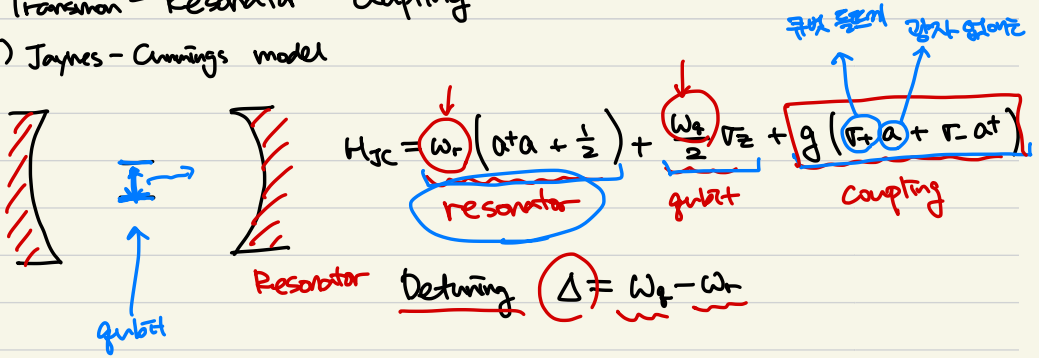 Transmon - Resonator Coupling
) Jaynes - Cummings model
큐빗 들뜨게 광자 없애는
H_JC = ω_r (a†a + 1/2) + ω_q/2 σ_z + g (σ+ a + σ- a†)
resonator qubit coupling
Resonator Detuning Δ = ω_q - ω_r
qubit